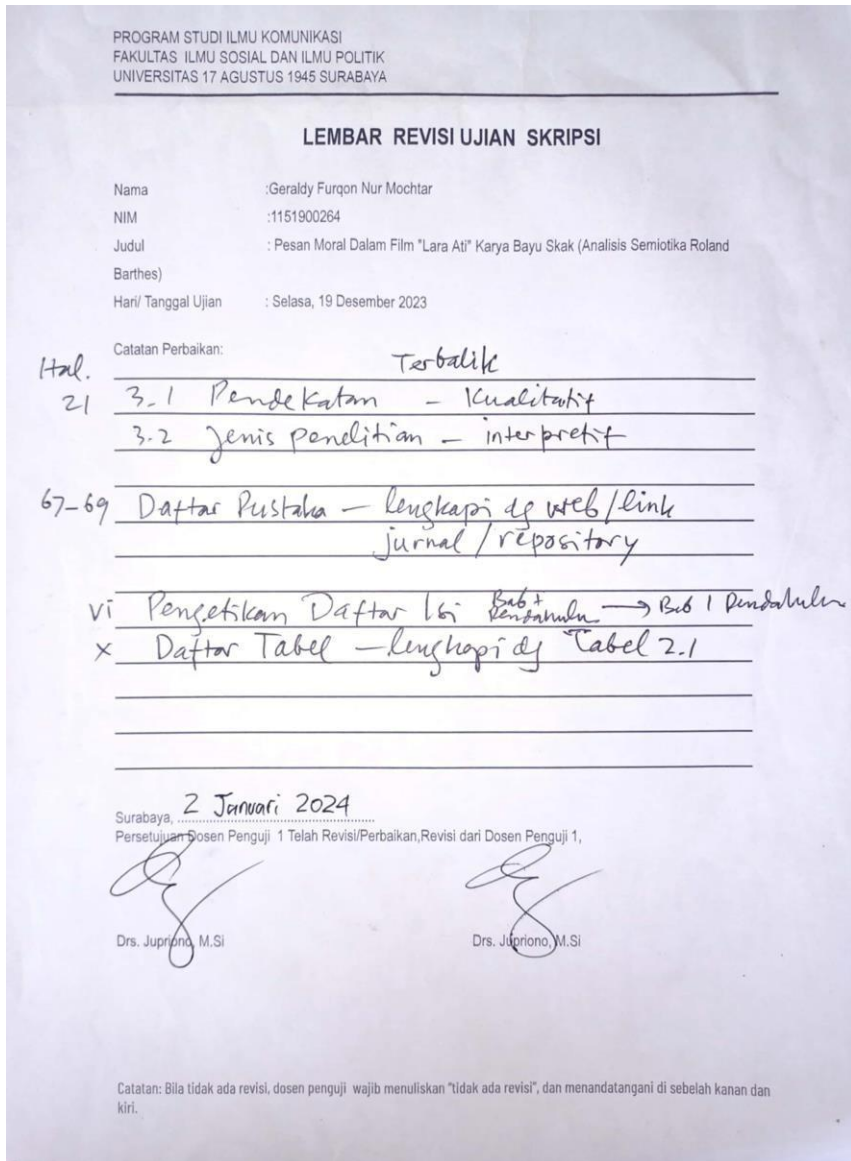 PROGRAM STUDI ILMU KOMUNIKASI
FAKULTAS ILMU SOSIAL DAN ILMU POLITIK
UNIVERSITAS 17 AGUSTUS 1945 SURABAYA
LEMBAR REVISI UJIAN SKRIPSI
Nama :Geraldy Furqon Nur Mochtar
NIM :1151900264
Judul : Pesan Moral Dalam Film "Lara Ati" Karya Bayu Skak (Analisis Semiotika Roland
Barthes)
Hari/ Tanggal Ujian : Selasa, 19 Desember 2023
Catatan Perbaikan:
Hal. Terbalik
21 3.1 Pendekatan - Kualitatif
3.2 Jenis penelitian - interpretif
67-69 Daftar Pustaka - lengkapi dg web/link
jurnal/repository
vi Pengetikan Daftar Isi Bab 1 Pendahulu → Bab 1 Pendahuluan
x Daftar Tabel - lengkapi dg Tabel 2.1
Surabaya, 2 Januari 2024
Persetujuan Dosen Penguji 1 Telah Revisi/Perbaikan,Revisi dari Dosen Penguji 1,
Drs. Jupriono, M.Si Drs. Jupriono, M.Si
Catatan: Bila tidak ada revisi, dosen penguji wajib menuliskan "tidak ada revisi", dan menandatangani di sebelah kanan dan
kiri.